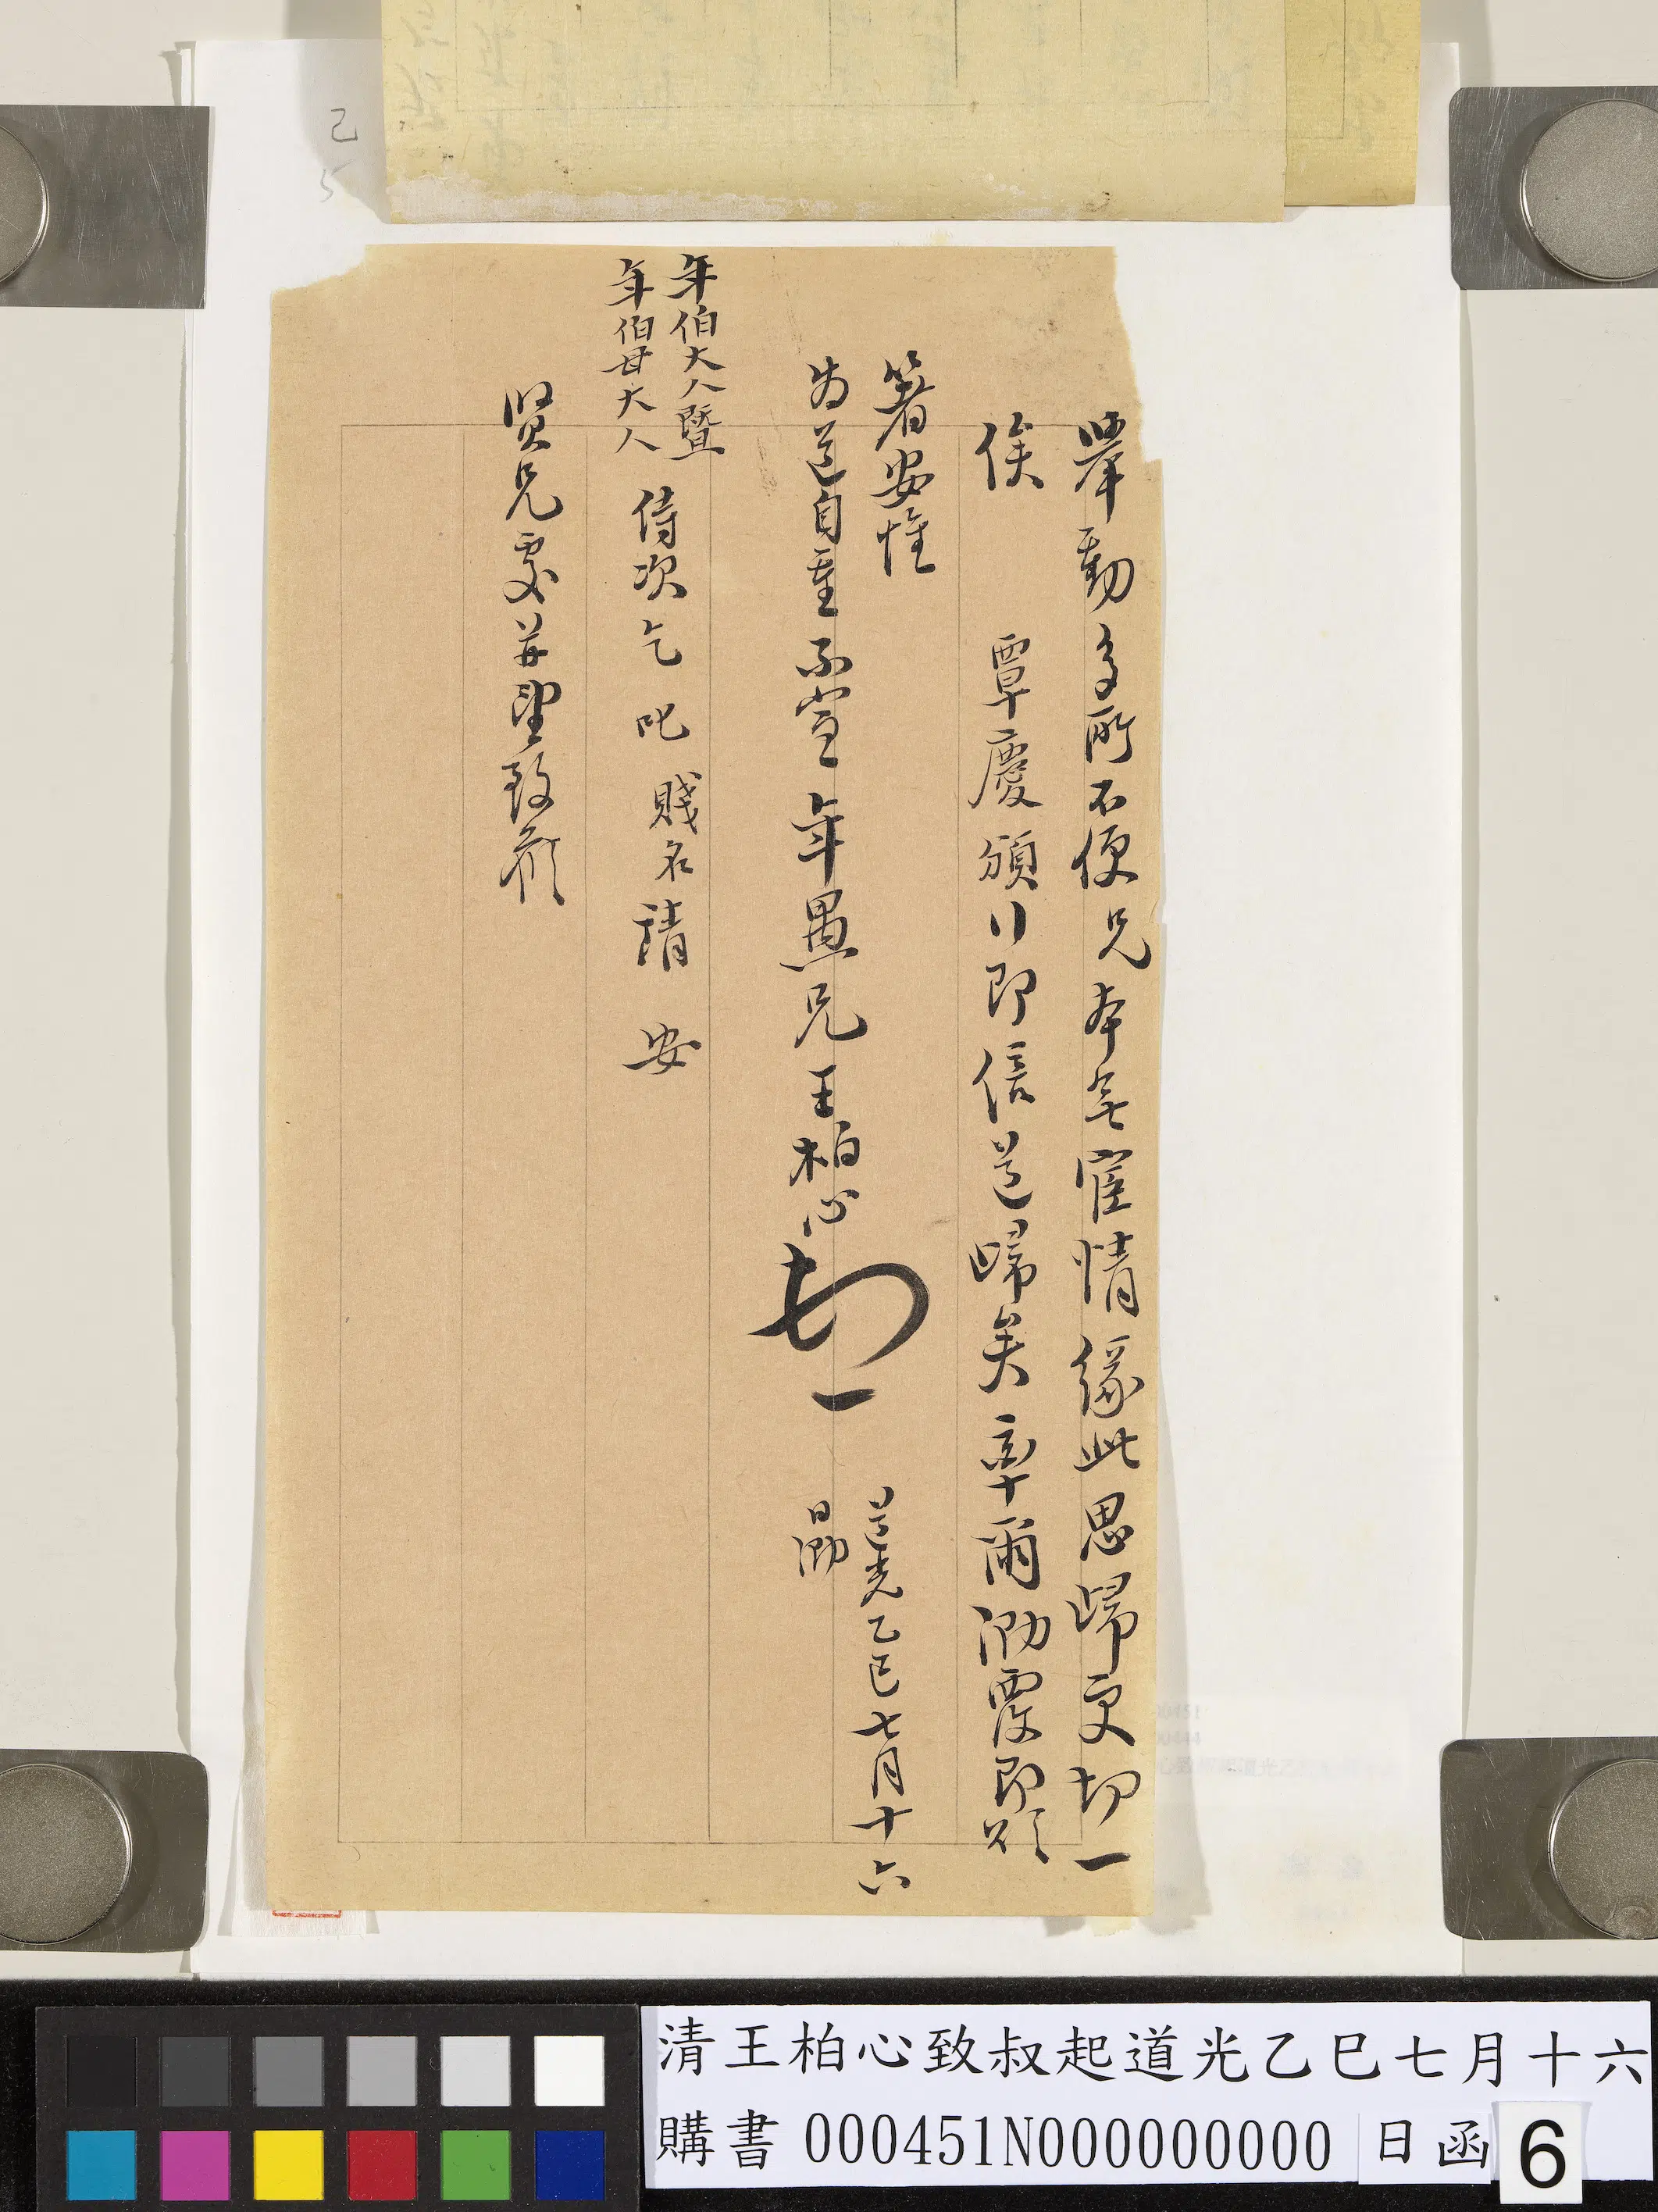 舉動多所不便兄本無宦情緣此思歸更切一
俟 覃慶頒行即信道歸矣率爾泐覆即頌
箸安惟
為道自重不宣 年愚兄王柏心頓首
道光乙巳七月十六
日泐
年伯大人暨
年伯母大人 侍次乞叱賤名請 安
賢兄處并望致候
己
5
清王柏心致叔起道光乙巳七月十六
購書 000451N000000000 日函 6